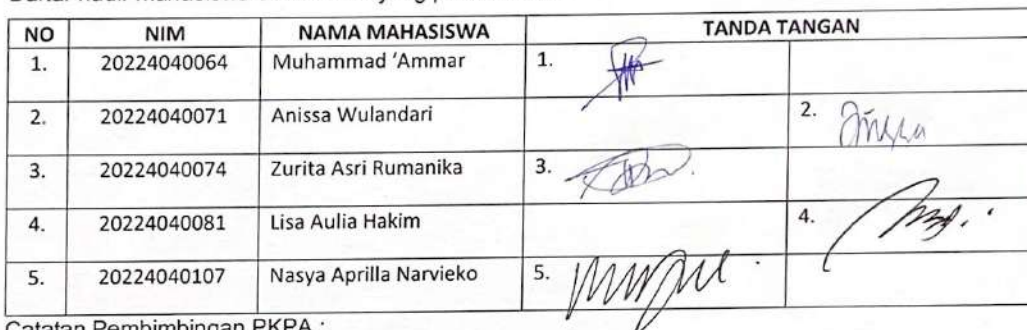 NO NIM NAMA MAHASISWA TANDA TANGAN
1. 20224040064 Muhammad ‘Ammar 1.
2. 20224040071 Anissa Wulandari 2.
3. 20224040074 Zurita Asri Rumanika 3.
4. 20224040081 Lisa Aulia Hakim 4.
5. 20224040107 Nasya Aprilla Narvieko 5.
Catatan Pembimbingan PKPA :